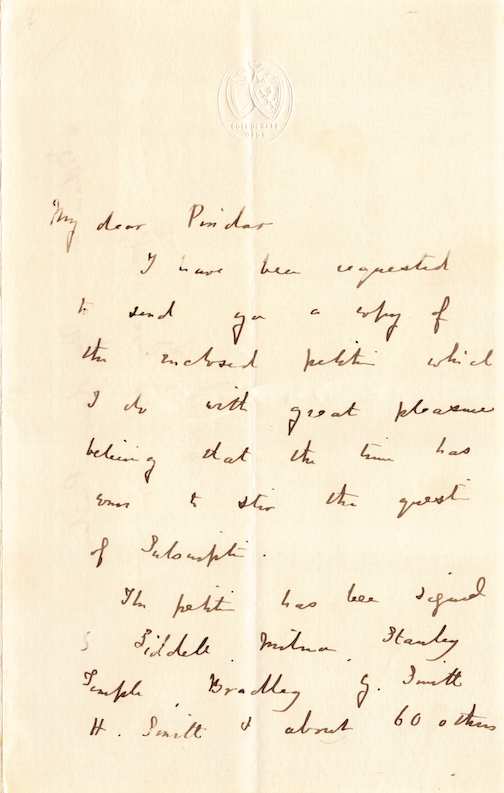 My dear Pindar
I have been requested
to send you a copy of
the enclosed petition which
I do with great pleasure
believing that the time has
come to stir the question
of Subscription.
The petition has been signed
Liddell, Milman, Stanley
Temple, Bradley G. Smith
H. Smith & about 60 others